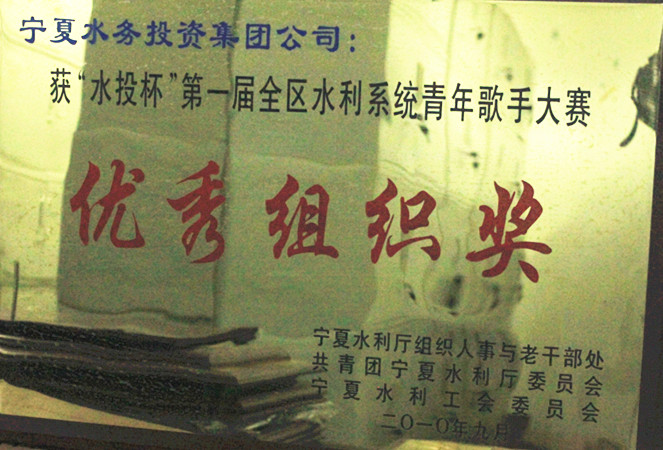 宁夏水务投资集团公司：
获“水投杯”第一届全区水利系统青年歌手大赛
优秀组织奖
宁夏水利厅组织人事与老干部处
共青团宁夏水利厅委员会
宁夏水利工会委员会
二〇一〇年九月